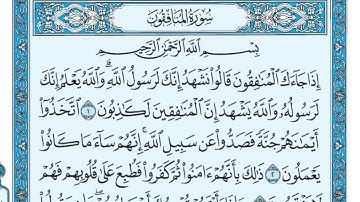 سُورَةُ المُنَافِقُونَ
بِسْمِ اللَّهِ الرَّحْمَٰنِ الرَّحِيمِ
إِذَا جَاءَكَ الْمُنَافِقُونَ قَالُوا نَشْهَدُ إِنَّكَ لَرَسُولُ اللَّهِ ۗ وَاللَّهُ يَعْلَمُ إِنَّكَ
لَرَسُولُهُ وَاللَّهُ يَشْهَدُ إِنَّ الْمُنَافِقِينَ لَكَاذِبُونَ ١ اتَّخَذُوا
أَيْمَانَهُمْ جُنَّةً فَصَدُّوا عَن سَبِيلِ اللَّهِ ۚ إِنَّهُمْ سَاءَ مَا كَانُوا
يَعْمَلُونَ ٢ ذَٰلِكَ بِأَنَّهُمْ آمَنُوا ثُمَّ كَفَرُوا فَطُبِعَ عَلَىٰ قُلُوبِهِمْ فَهُمْ